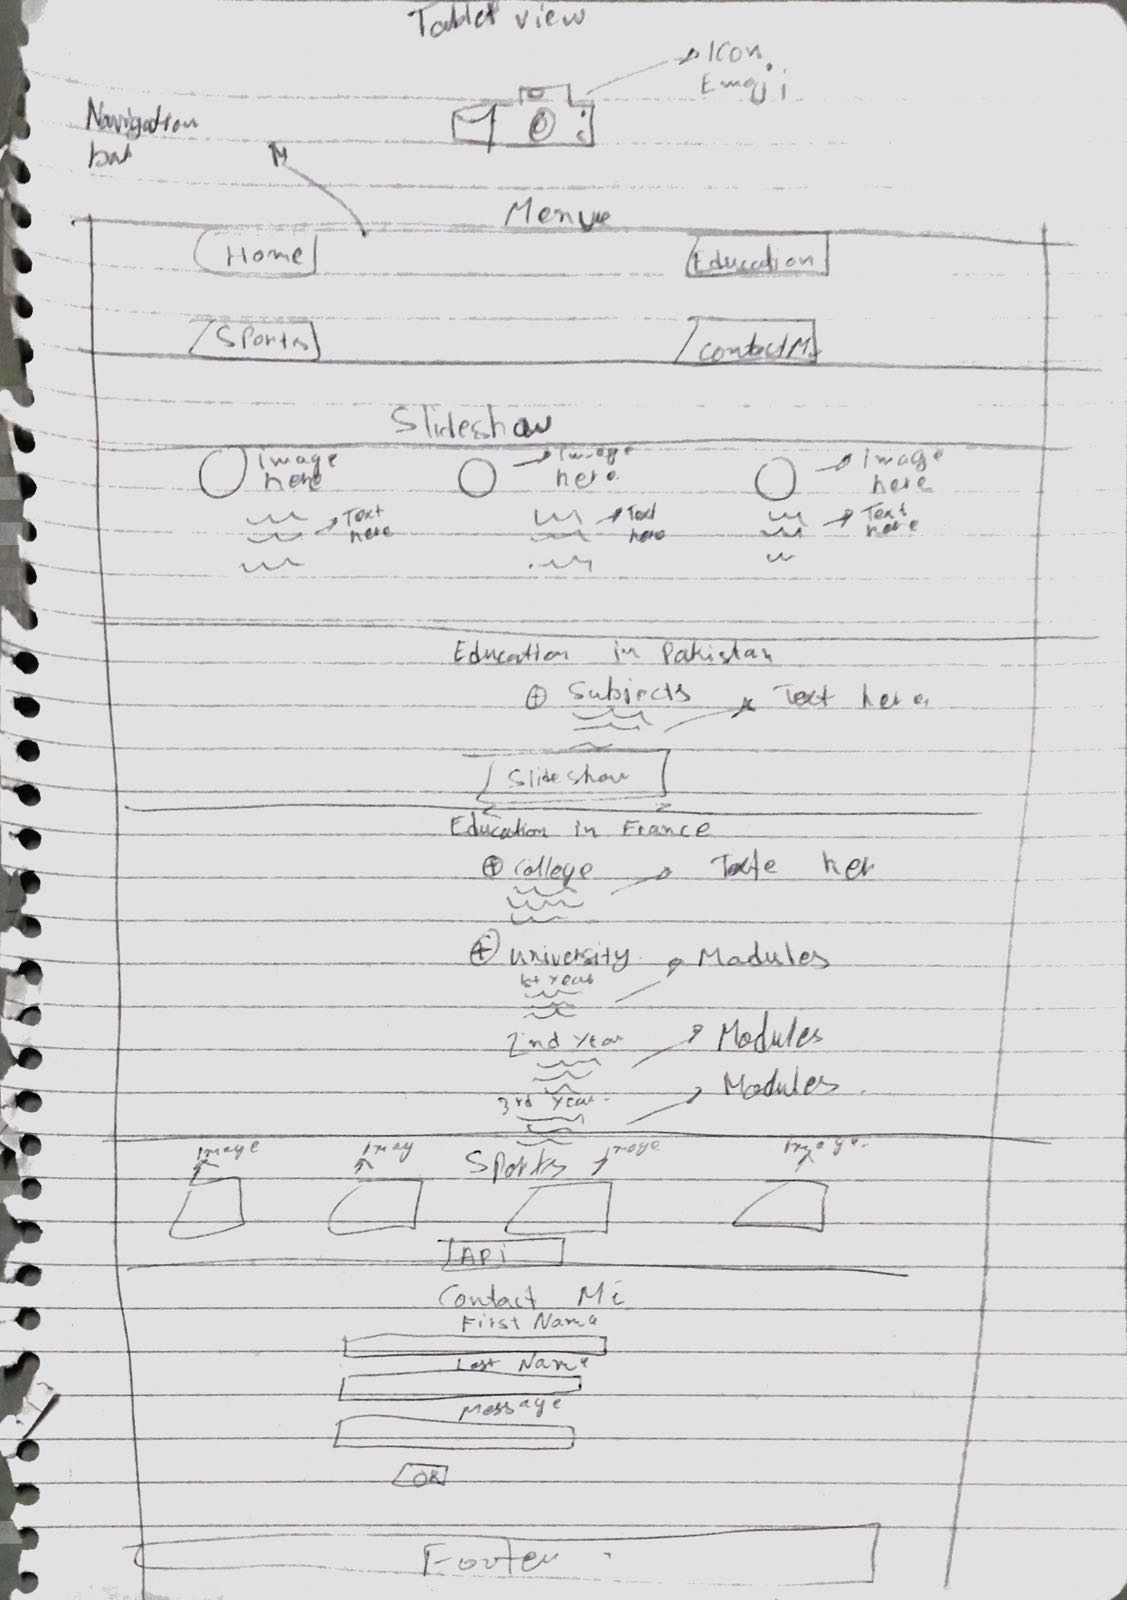 Tablet view
Icon
Emoji
Navigation
bar
Menue
Home
Education
Sports
contact Me
Slideshow
image
here
image
here.
image
here
Text
here
Text
here
Text
here
Education in Pakistan
Subjects
Text here
Slideshow
Education in France
College
Texte her
University
Modules
1st year
2nd year
Modules
3rd year
Modules
image
imag
Sports
image
image
API
Contact Me
First Name
Last Name
Message
OK
Footer